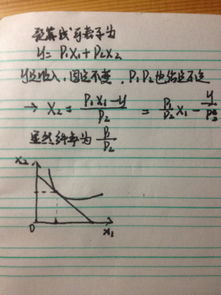 预算线方程式为
y = P₁X₁ + P₂X₂
y是收入,固定不变,P₁P₂也给定不变
→ X₂ = P₁X₁-y / P₂ = P₁/P₂ X₁ - y/P₂
显然斜率为 P₁/P₂
X₂
0 X₁